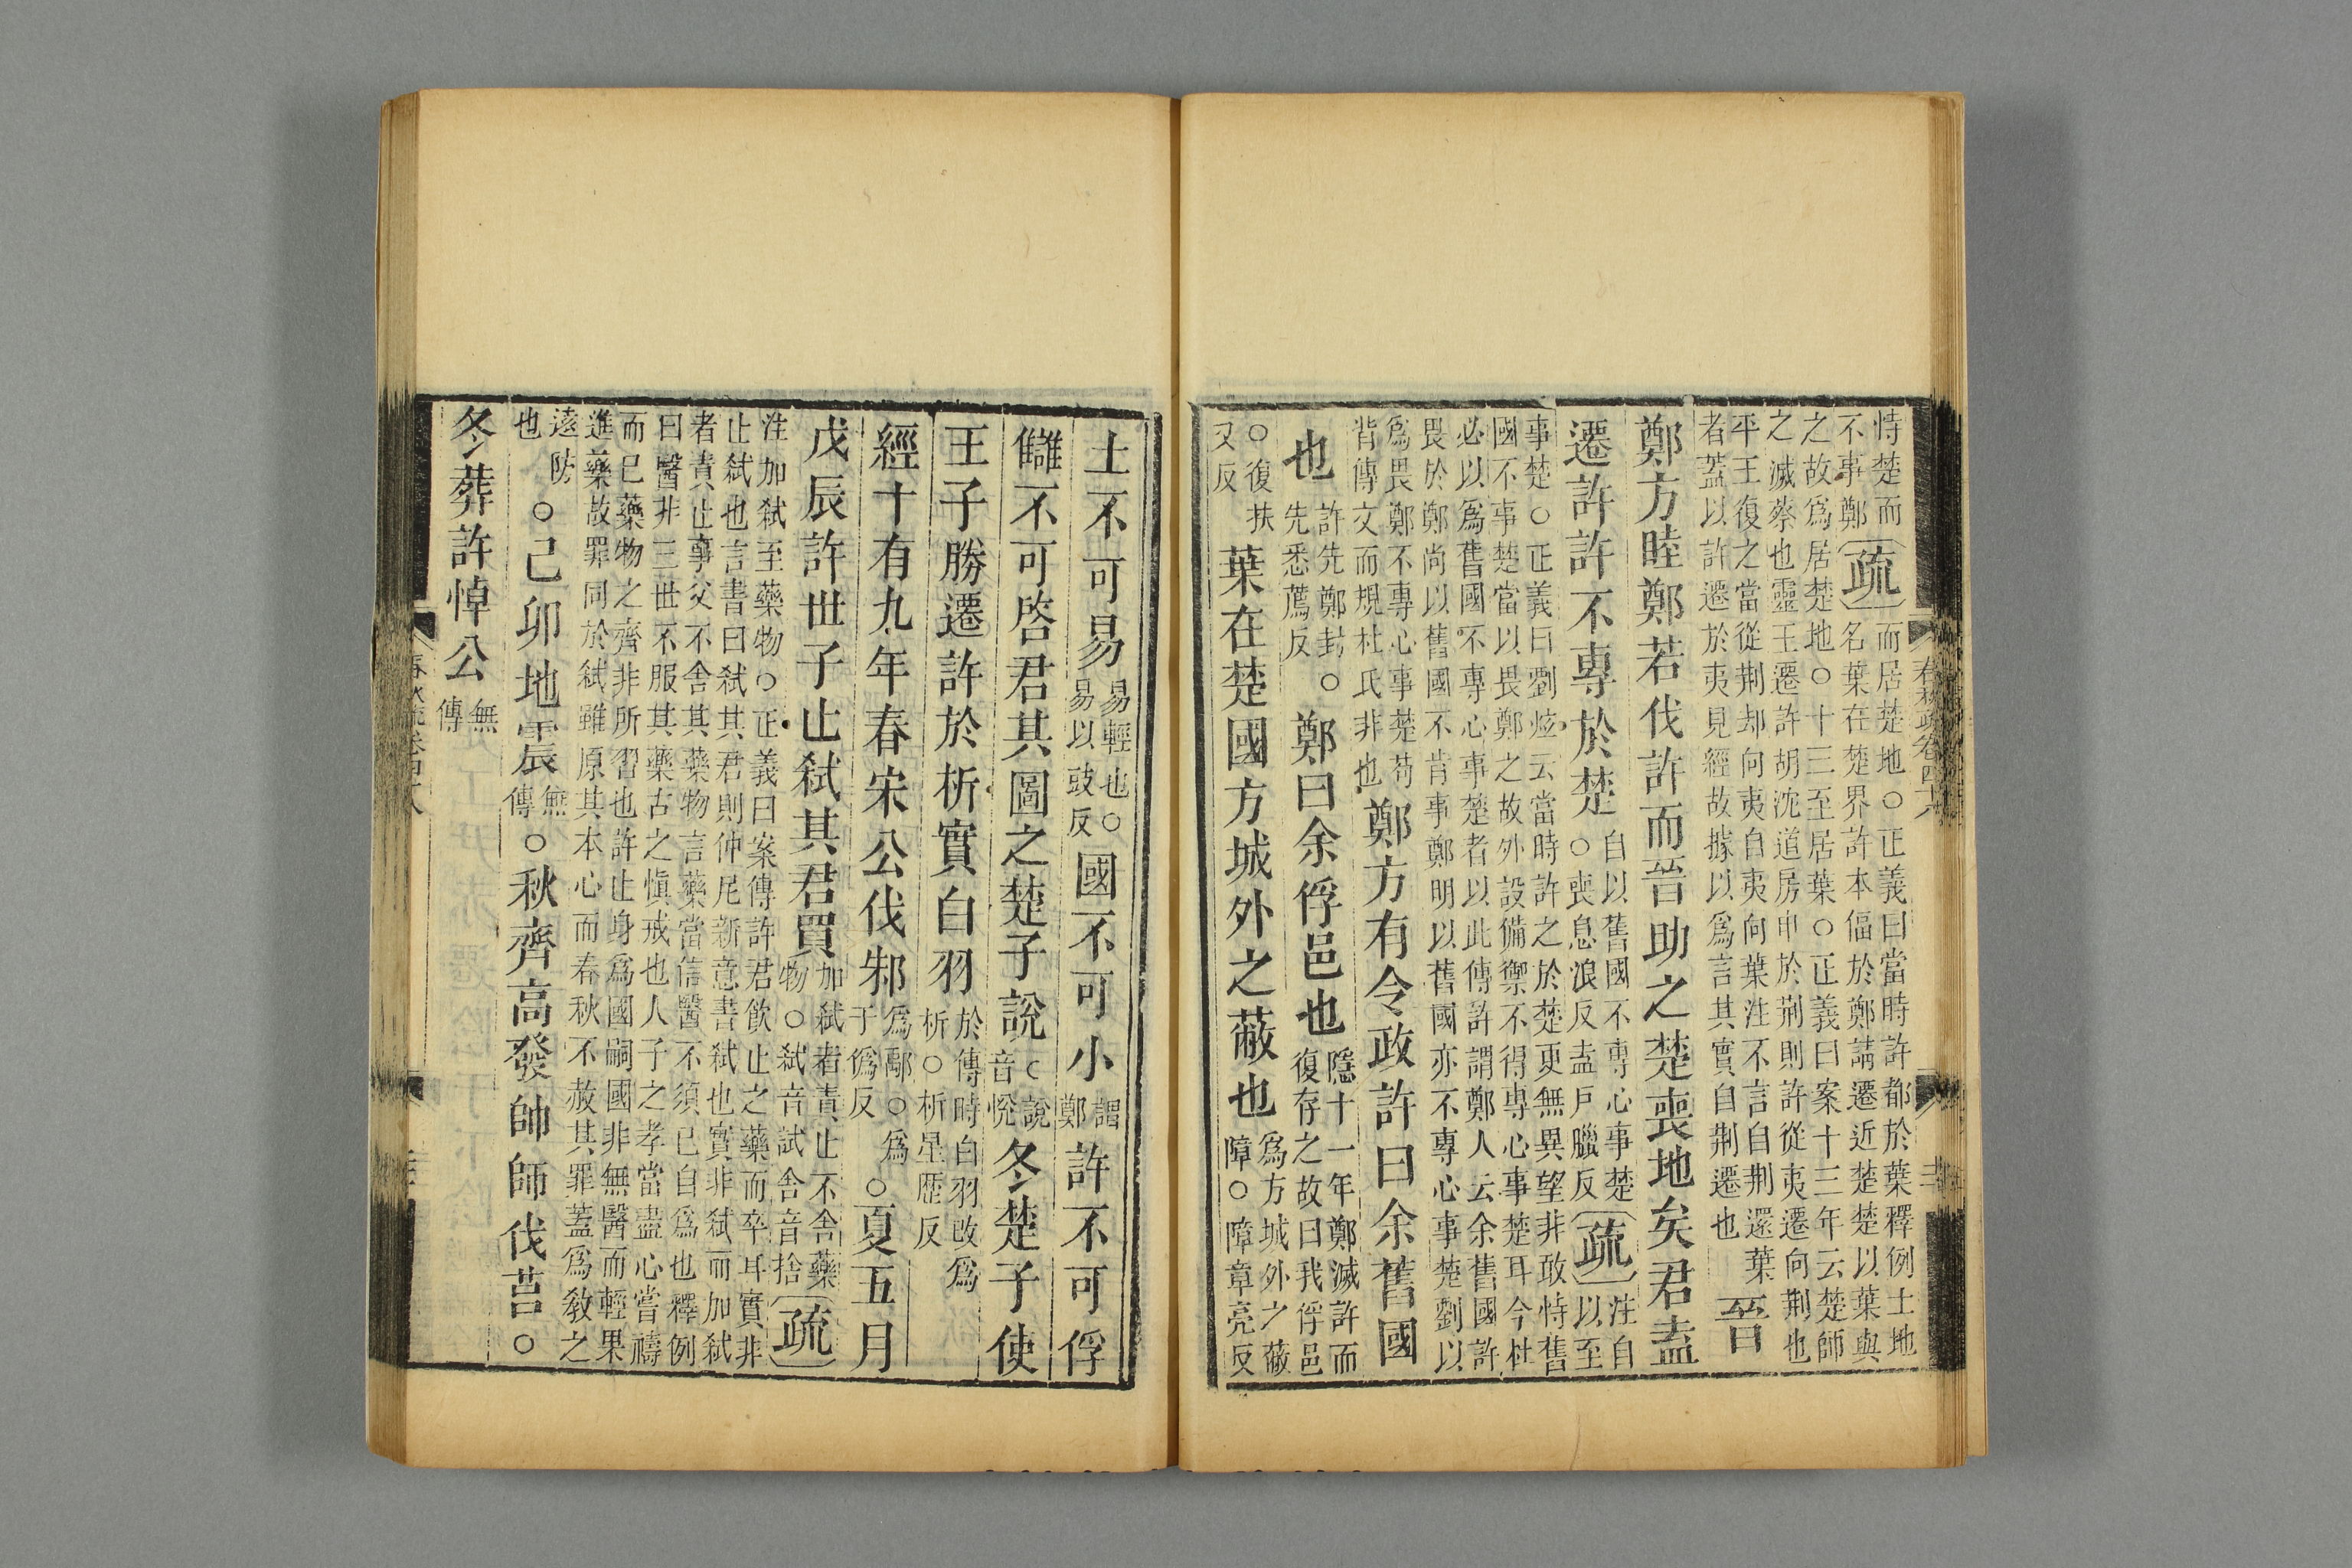 恃楚而不事鄭疏而居楚地○正義曰當時許都於葉釋例土地
名葉在楚界許本偪於鄭請遷近楚以葉與
之故爲居楚地○十三至居葉○正義曰案十三年云楚師
之滅蔡也靈王遷許胡沈道房申於荆則許從夷遷向荆也
平王復之當從荆却向夷自夷向葉注不言自荆還葉
者蓋以許遷於夷見經故據以爲言其實自荆遷也晉
鄭方睦鄭若伐許而晉助之楚喪地矣君盍
遷許許不專於楚自以舊國不專心事楚○喪息浪反盍戶臘反疏注自以至
事楚○正義曰劉炫云當時許之於楚更無異望非敢恃舊
國不事楚當以畏鄭之故外設備禦不得專心事楚耳今杜
必以爲舊國不專心事楚者以此傳許謂鄭人云余舊國許
畏於鄭尚以舊國不肯事鄭明以舊國亦不專心事楚劉以
爲畏鄭不專心事楚苟
背傳文而規杜氏非也鄭方有令政許曰余舊國
也許先鄭封○先悉薦反鄭曰余俘邑也隱十一年鄭滅許而復存之故曰我俘邑
○復扶又反葉在楚國方城外之蔽也爲方城外之蔽障○障章亮反
土不可易易輕也○易以豉反國不可小謂鄭許不可俘
讎不可啓君其圖之楚子說○說音悅冬楚子使
王子勝遷許於析實白羽於傳時白羽改爲析○析星歷反
經十有九年春宋公伐邾爲鄅○爲于僞反○夏五月
戊辰許世子止弑其君買加弑者責止不舍藥物○弑音試舍音捨疏
注加弑至藥物○正義曰案傳許君飲止之藥而卒耳實非
止弑也言書曰弑其君則仲尼新意書弑也實非弑而加弑
者責止事父不舍其藥物言藥當信醫不須已自爲也釋例
曰醫非三世不服其藥古之愼戒也人子之孝當盡心嘗禱
而已藥物之齊非所習也許止身爲國嗣國非無醫而輕果
進藥故罪同於弑雖原其本心而春秋不赦其罪蓋爲敎之
遠防也○己卯地震無傳○秋齊高發帥師伐莒○
冬葬許悼公無傳